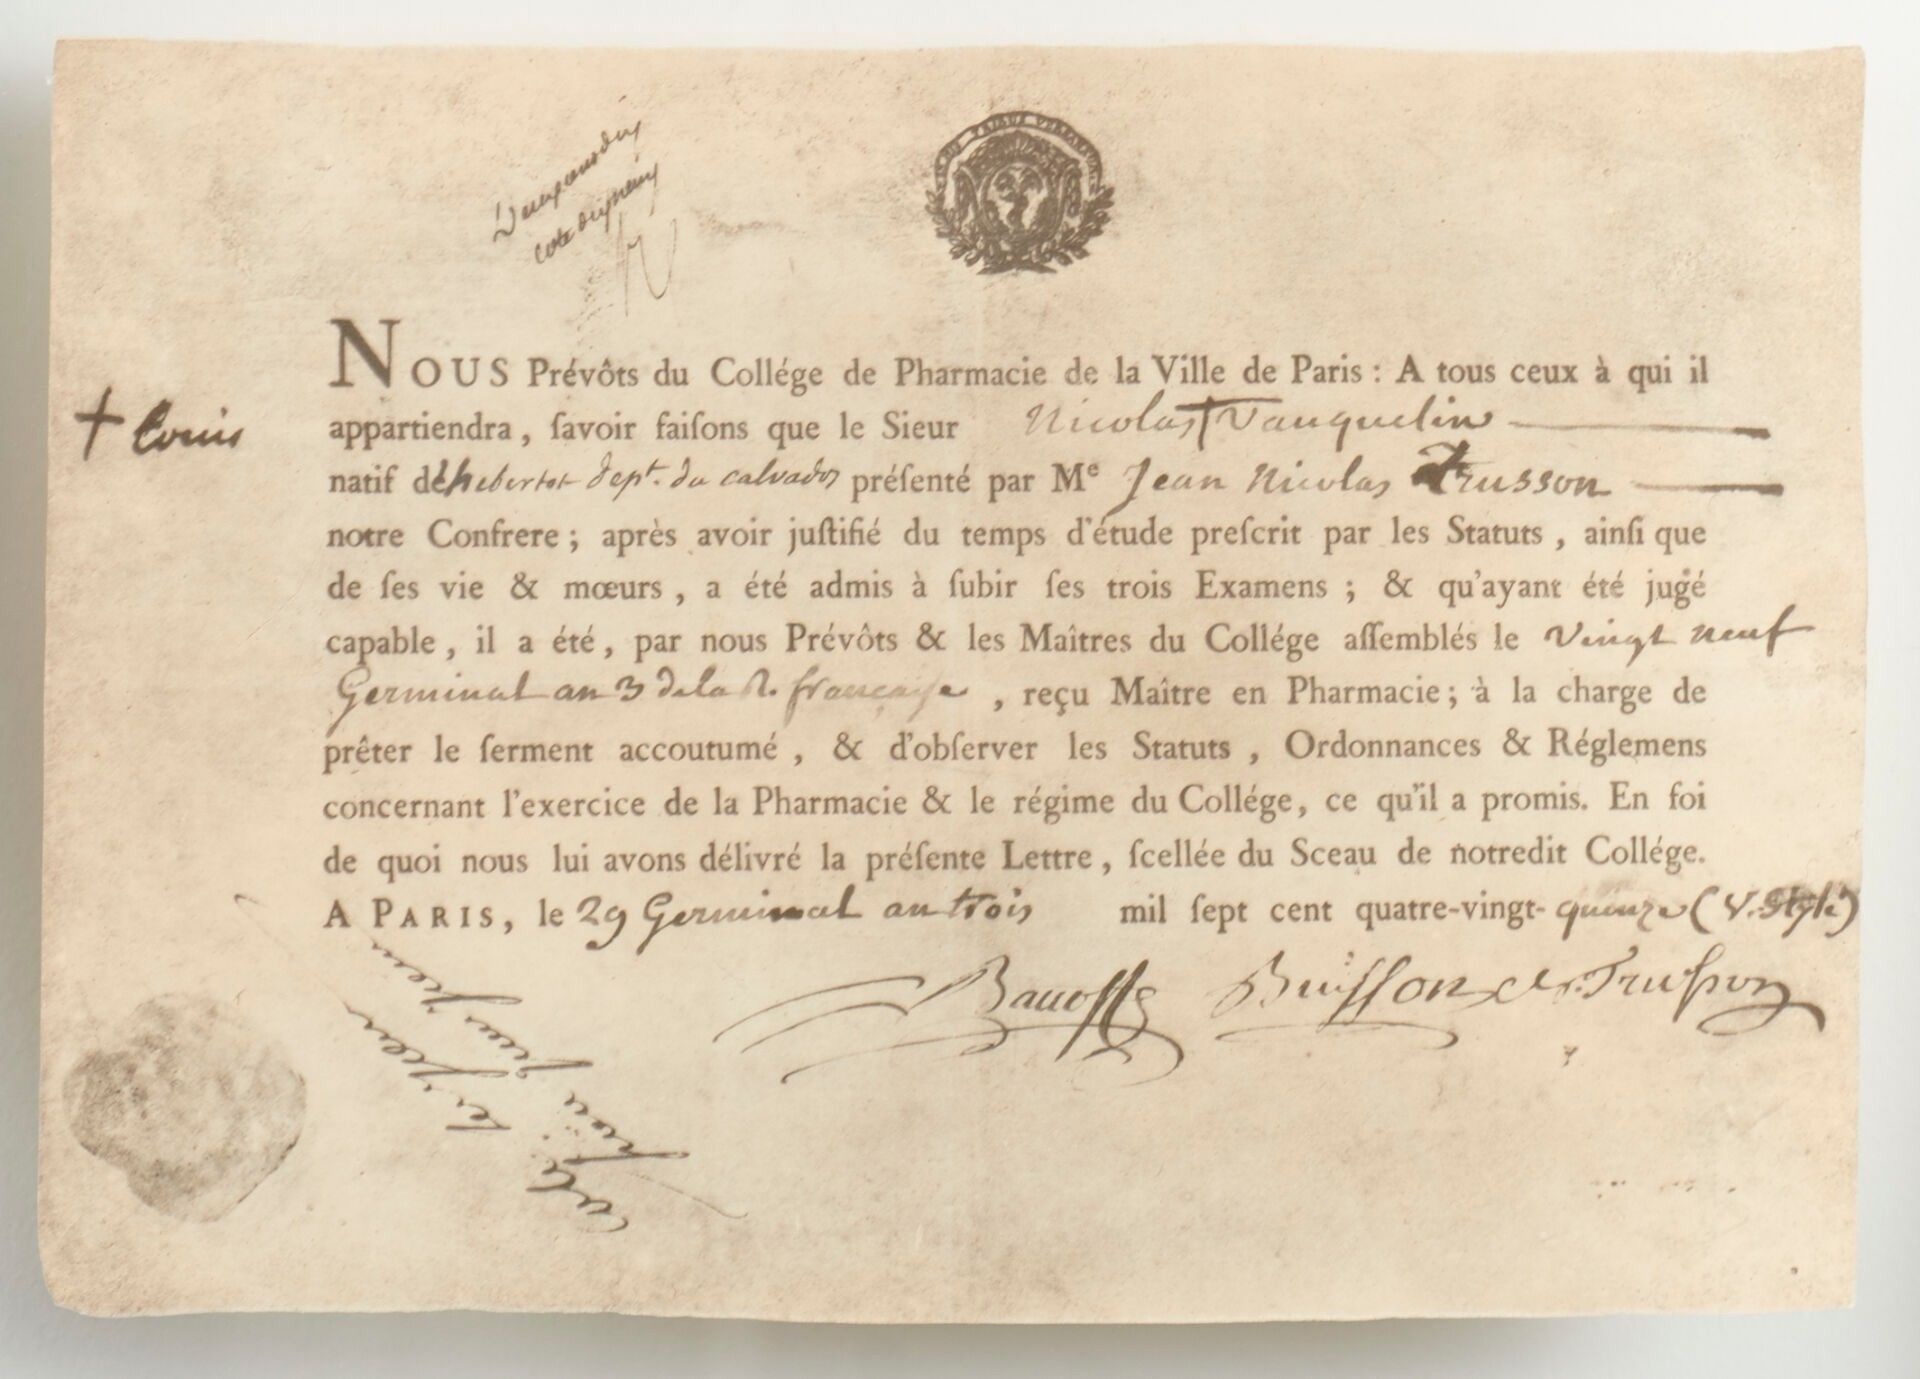 Nous Prévôts du Collége de Pharmacie de la Ville de Paris : A tous ceux à qui il
+ Louis
appartiendra, ſavoir faiſons que le Sieur Nicolas + Vauquelin
natif de hebertot dept. du calvados préſenté par Me Jean Nicolas Trusson
notre Confrere ; après avoir juſtifié du temps d'étude preſcrit par les Statuts, ainſi que
de ſes vie & mœurs, a été admis à ſubir ſes trois Examens ; & qu'ayant été jugé
capable, il a été, par nous Prévôts & les Maîtres du Collége aſſemblés le vingt neuf
Germinal an 3 de la R. française, reçu Maître en Pharmacie ; à la charge de
prêter le ſerment accoutumé, & d'obſerver les Statuts, Ordonnances & Réglemens
concernant l'exercice de la Pharmacie & le régime du Collége, ce qu'il a promis. En foi
de quoi nous lui avons délivré la préſente Lettre, ſcellée du Sceau de notredit Collége.
A PARIS, le 29 Germinal an trois mil ſept cent quatre-vingt-quinze (V. Style)
Buisson Trusson